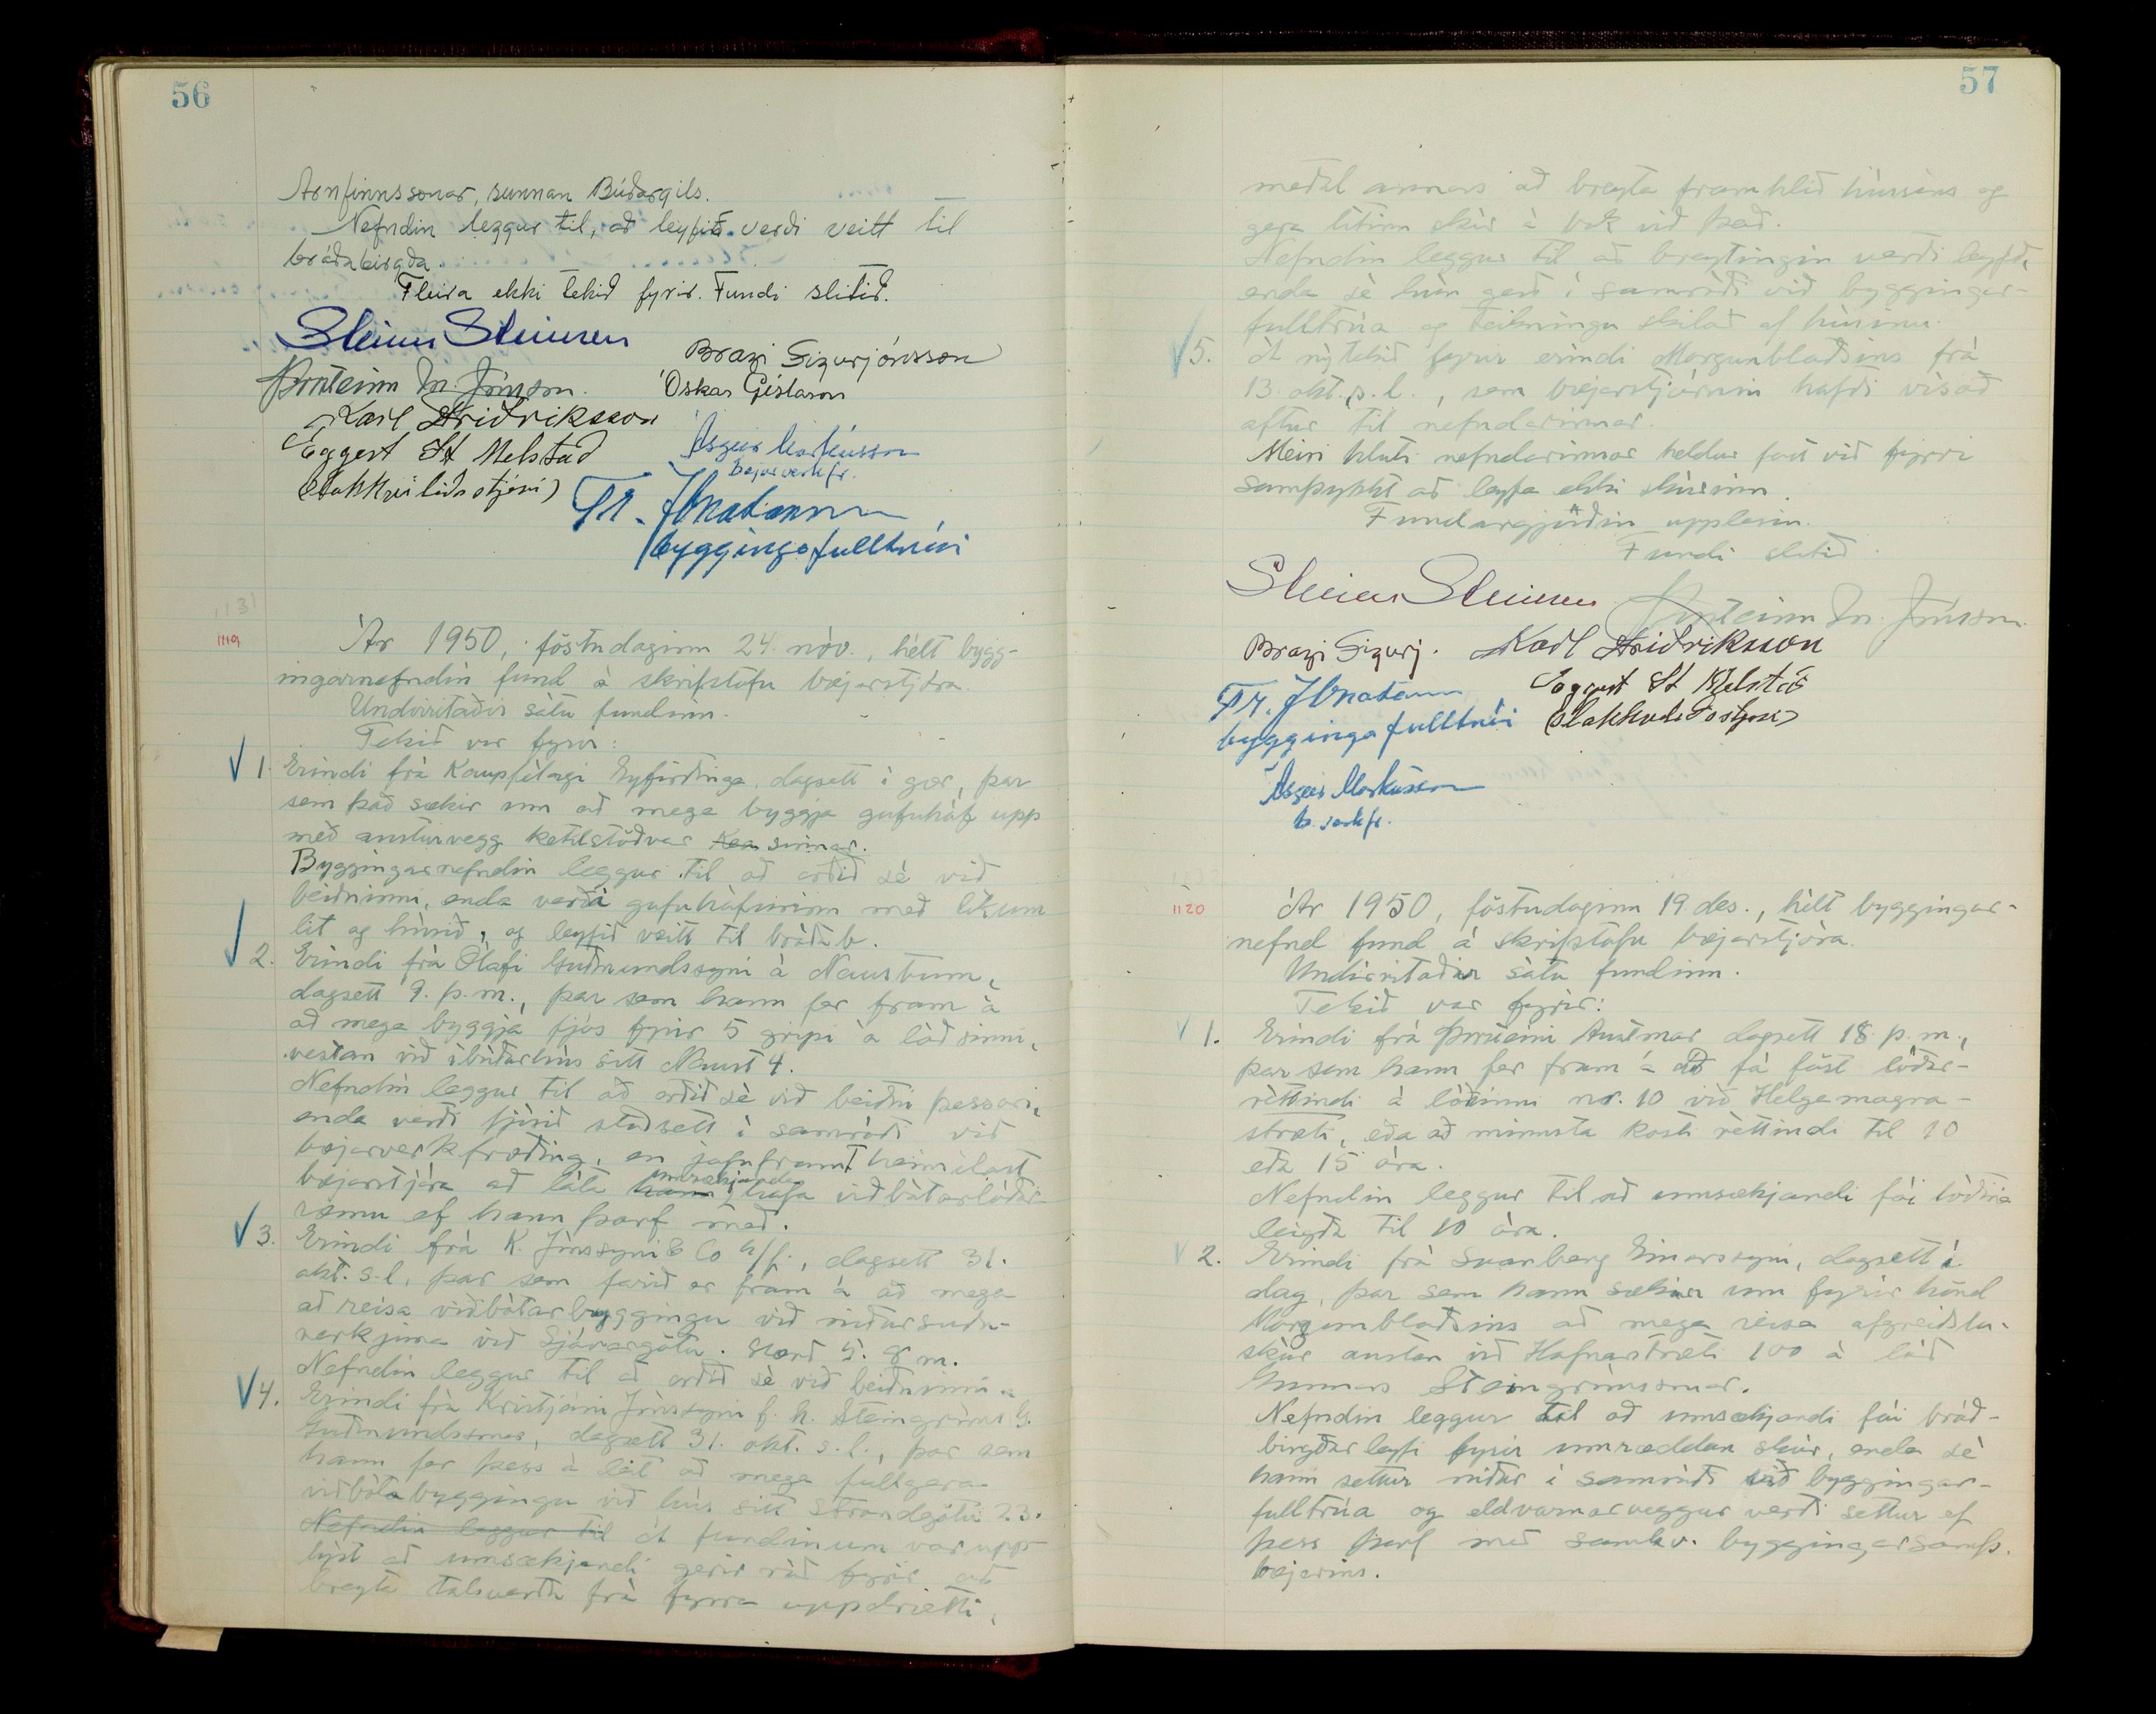 56
Arnfinnssonar, sunnan Búðargils.
Nefndin leggur til, að leyfið verði veitt til
bráðabirgða.
Fleira ekki tekið fyrir. Fundi slitið.
Steinn Steinsen
Bragi Sigurjónsson
Þorsteinn M. Jónsson.
Óskar Gíslason
Karl Friðriksson
Ásgeir Markússon
Eggert St Melstað
bæjarverkfr.
(Slökkviliðsstjóri)
Tr. Jónatansson
byggingafulltrúi
1131
1119
Ár 1950, föstudaginn 24. nóv., hélt bygg-
ingarnefndin fund á skrifstofu bæjarstjóra.
Undirritaðir sátu fundinn.
Tekið var fyrir:
1. Erindi frá Kaupfélagi Eyfirðinga, dagsett í gær, þar
sem það sækir um að mega byggja gufuháf upp
með austurvegg ketilstöðvar Kea sinnar.
Byggingarnefndin leggur til að orðið sé við
beiðninni, enda verði gufuháfurinn með líkum
lit og húsið, og leyfið veitt til bráðab.
2. Erindi frá Ólafi Guðmundssyni á Naustum,
dagsett 9. þ.m., þar sem hann fer fram á
að mega byggja fjós fyrir 5 gripi á lóð sinni,
vestan við íbúðarhús sitt Naust 4.
Nefndin leggur til að orðið sé við beiðni þessari,
enda verði fjósið staðsett í samráði við
bæjarverkfræðing, en jafnframt heimilast
bæjarstjóra að láta hann umsækjanda hafa viðbótarlóðar
ræmu ef hann þarf með.
3. Erindi frá K. Jónssyni & Co h/f., dagsett 31.
okt. s.l., þar sem farið er fram á að mega
að reisa viðbótarbyggingu við niðursuðu-
verksmiðju við Sjávargötu. Stærð 5. 8 m.
Nefndin leggur til að orðið sé við beiðninni.
4. Erindi frá Kristjáni Jónssyni f. h. Steingríms G.
Guðmundssonar, dagsett 31. okt. s.l., þar sem
hann fer þess á leit að mega fullgera
viðbótabyggingu við hús sitt Strandgötu 23.
Nefndin leggur til Á fundinum var upp
lýst að umsækjandi gerir ráð fyrir að
breyta talsverðu frá fyrra uppdrætti,
57
meðal annars að breyta framhlið hússins og
gera lítinn skúr á bak við það.
Nefndin leggur til að breytingin verði leyfð,
enda sé hún gerð í samráði við byggingar-
fulltrúa og teikningu skilað af húsinu.
5. Á ný tekið fyrir erindi Morgunblaðsins frá
13. okt. s.l., sem bæjarstjórnin hafði vísað
aftur til nefndarinnar.
Meiri hluti nefndarinnar heldur fast við fyrri
samþykkt að leyfa ekki skúrinn.
Fundargjörðin upplesin.
Fundi slitið.
Steinn Steinsen
Þorsteinn M. Jónsson.
Bragi Sigurj.
Karl Friðriksson
Tr. Jónatansson
Eggert St Melstað
byggingafulltrúi
(Slökkviliðsstjóri)
Ásgeir Markússon
b. verkfr.
1120
Ár 1950, föstudaginn 19. des., hélt byggingar-
nefnd fund á skrifstofu bæjarstjóra.
Undirritaðir sátu fundinn.
Tekið var fyrir:
1. Erindi frá Þorsteini Austmar dagsett 18. þ.m.,
þar sem hann fer fram á að fá föst lóðar-
réttindi á lóðinni nr. 10 við Helgamagra-
stræti, eða að minnsta kosti réttindi til 10
eða 15 ára.
Nefndin leggur til að umsækjandi fái lóðina
leigða til 10 ára.
2. Erindi frá Svanberg Einarssyni, dagsett í
dag, þar sem hann sækir um fyrir hönd
Morgunblaðsins að mega reisa afgreiðslu-
skúr austan við Hafnarstræti 100 á lóð
Gunnars Steingrímssonar.
Nefndin leggur til að umsækjandi fái bráð-
birgðarleyfi fyrir umræddan skúr, enda sé
hann settur niður í samráði við byggingar-
fulltrúa og eldvarnarveggur verði settur ef
þess þarf með samkv. byggingarsamþ.
bæjarins.